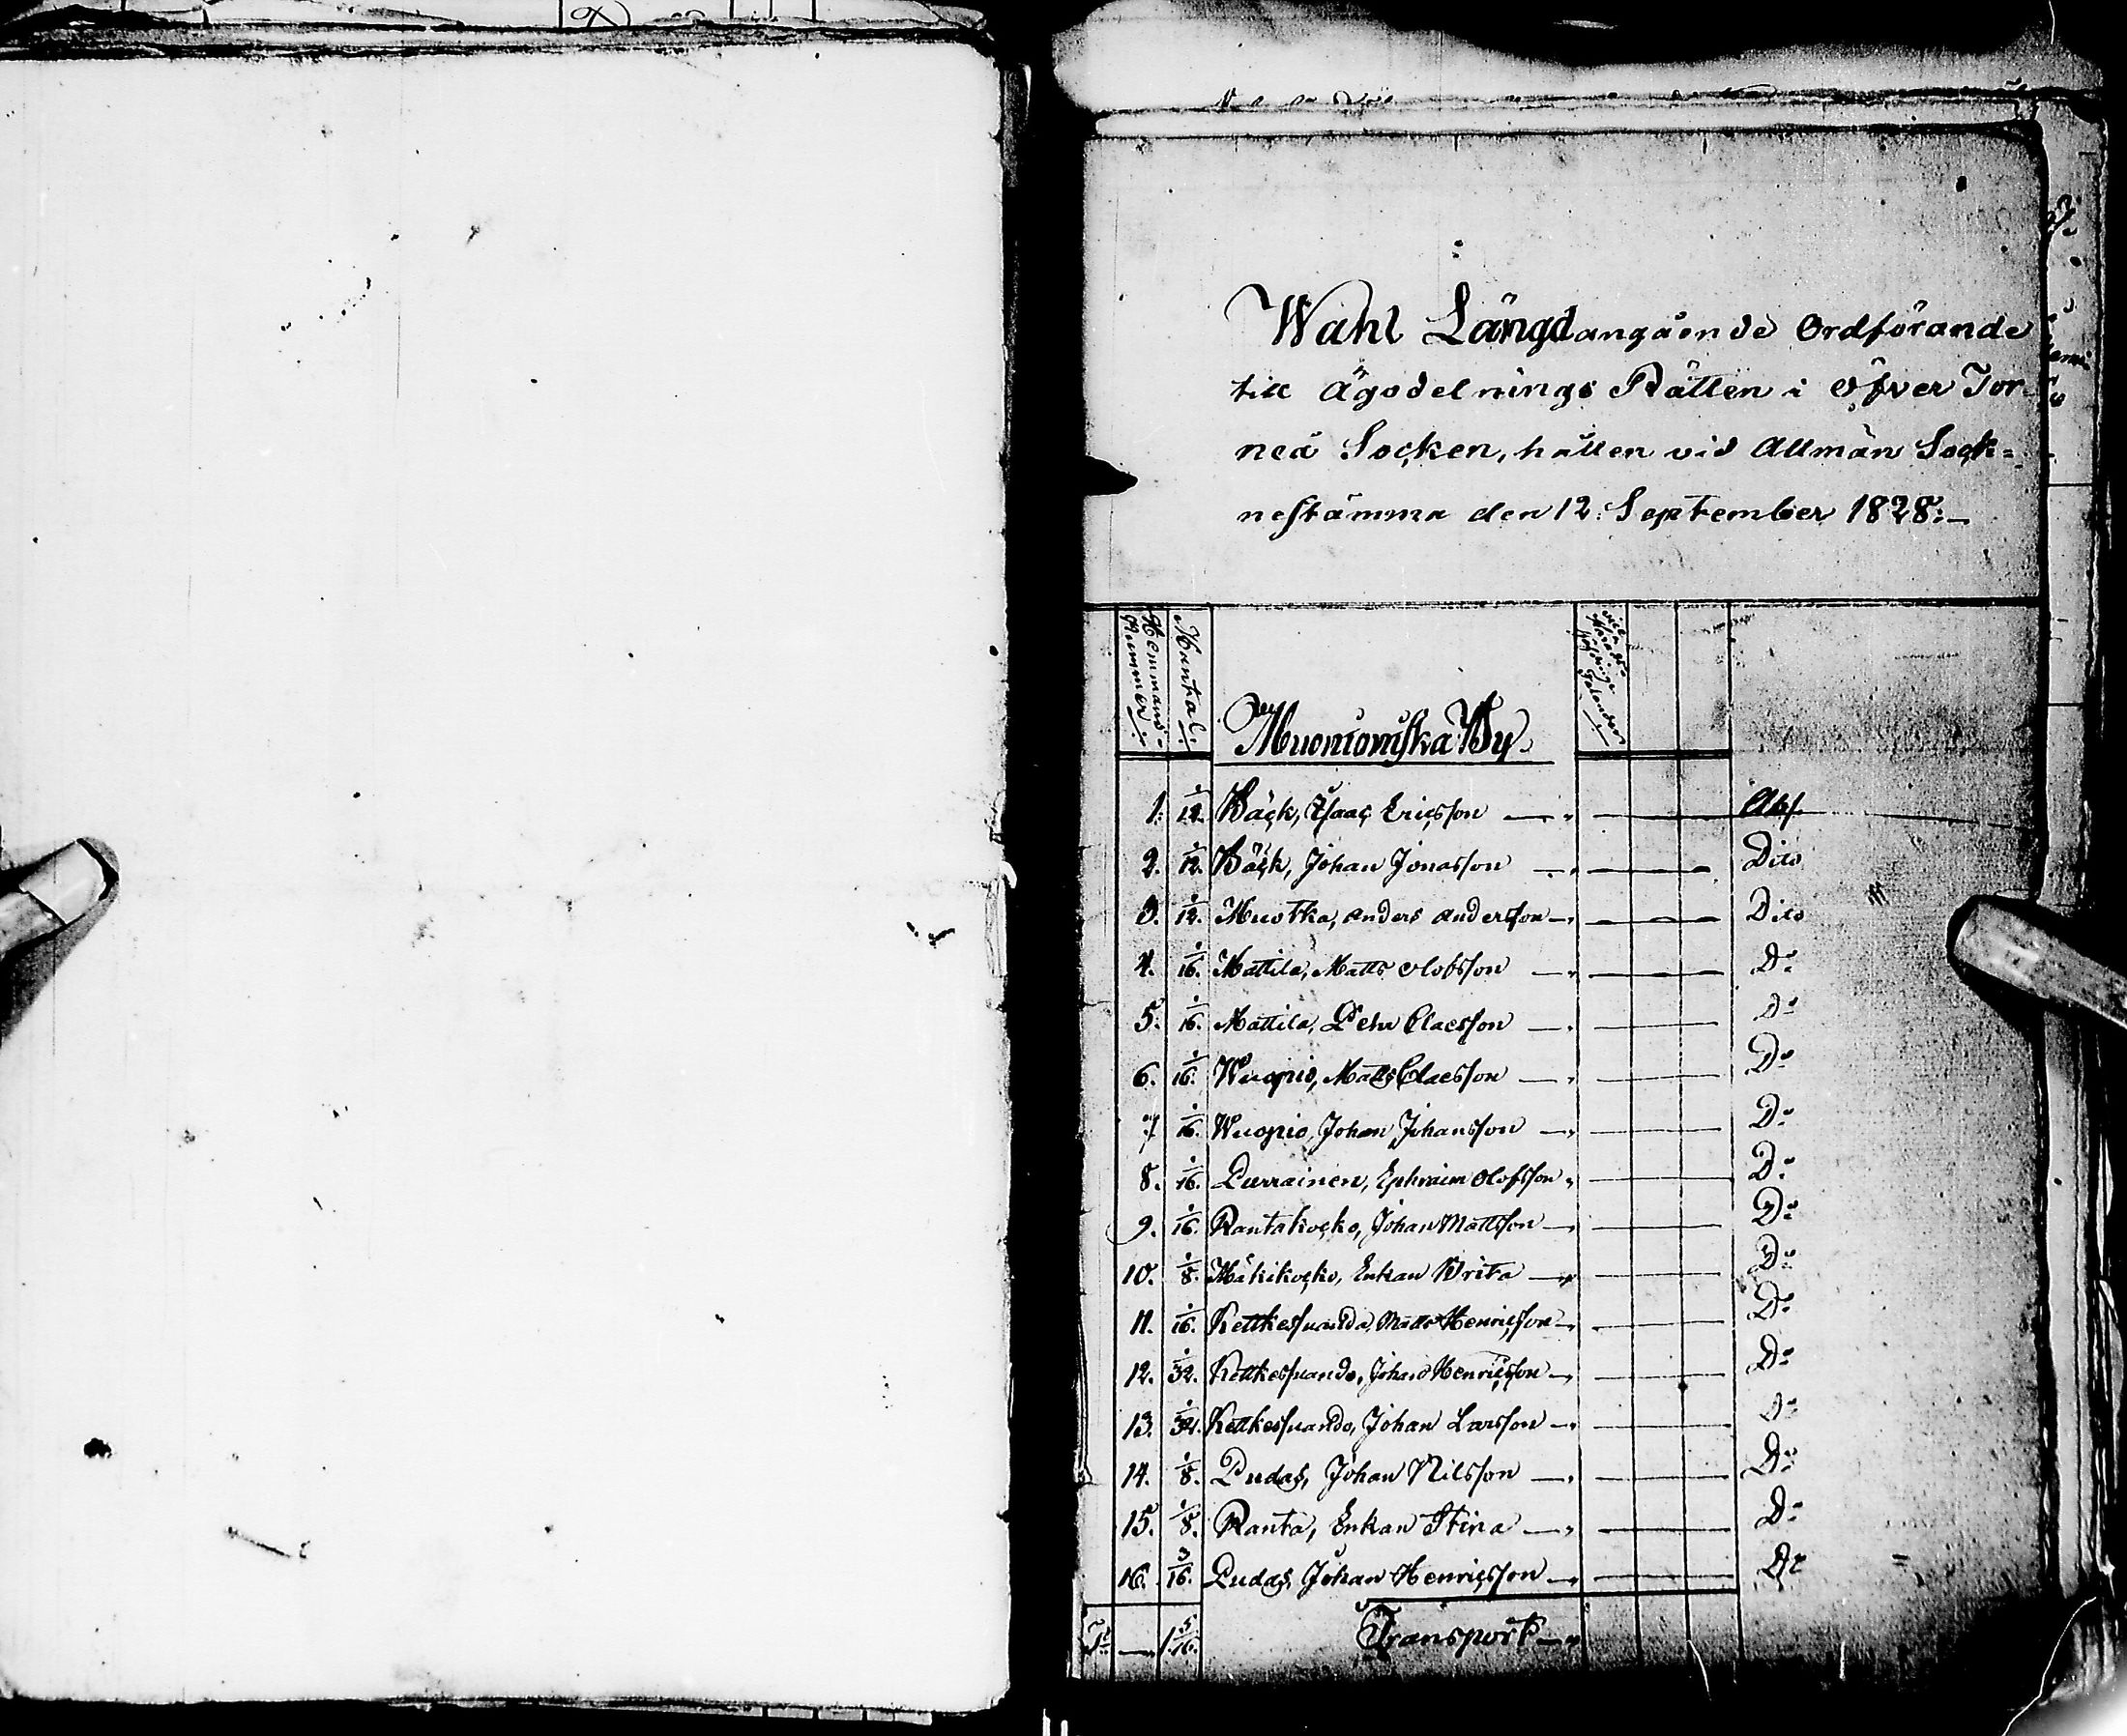 Wahl Längd angående Ordförande
till Ägodelnings Rätten i Öfver Tor-
neå Socken, hållen vid Allmän Sock=
nestämma den 12. September 1828:—
Hemmans-Nummer:
Mantal:
Muonioniska By.
1. 1/12. Bäck, Isaac Ericsson — Abs.
2. 1/12. Bäck, Johan Jonasson — Dito
3. 1/12. Muotka, Anders Andersson — Dito
4. 1/16. Mattila, Matts Olofsson — Do
5. 1/16. Mattila, Pehr Claesson — Do
6. 1/16. Wuopio, Matts Claesson — Do
7. 1/16. Wuopio, Johan Johansson — Do
8. 1/16. Purrainen, Ephraim Olofsson — Do
9. 1/16. Rantakocko, Johan Mattsson — Do
10. 1/8. Mäkikocko, Enkan Brita — Do
11. 1/16. Kettkesuando, Matts Henricsson — Do
12. 1/32. Kettkesuando, Johan Henricsson — Do
13. 1/32. Kettkesuando, Johan Larsson — Do
14. 1/8. Pudas, Johan Nilsson — Do
15. 1/8. Ranta, Enkan Stina — Do
16. 3/16. Pudas, Johan Henricsson — Do
Tr — 1 5/16. Transport —